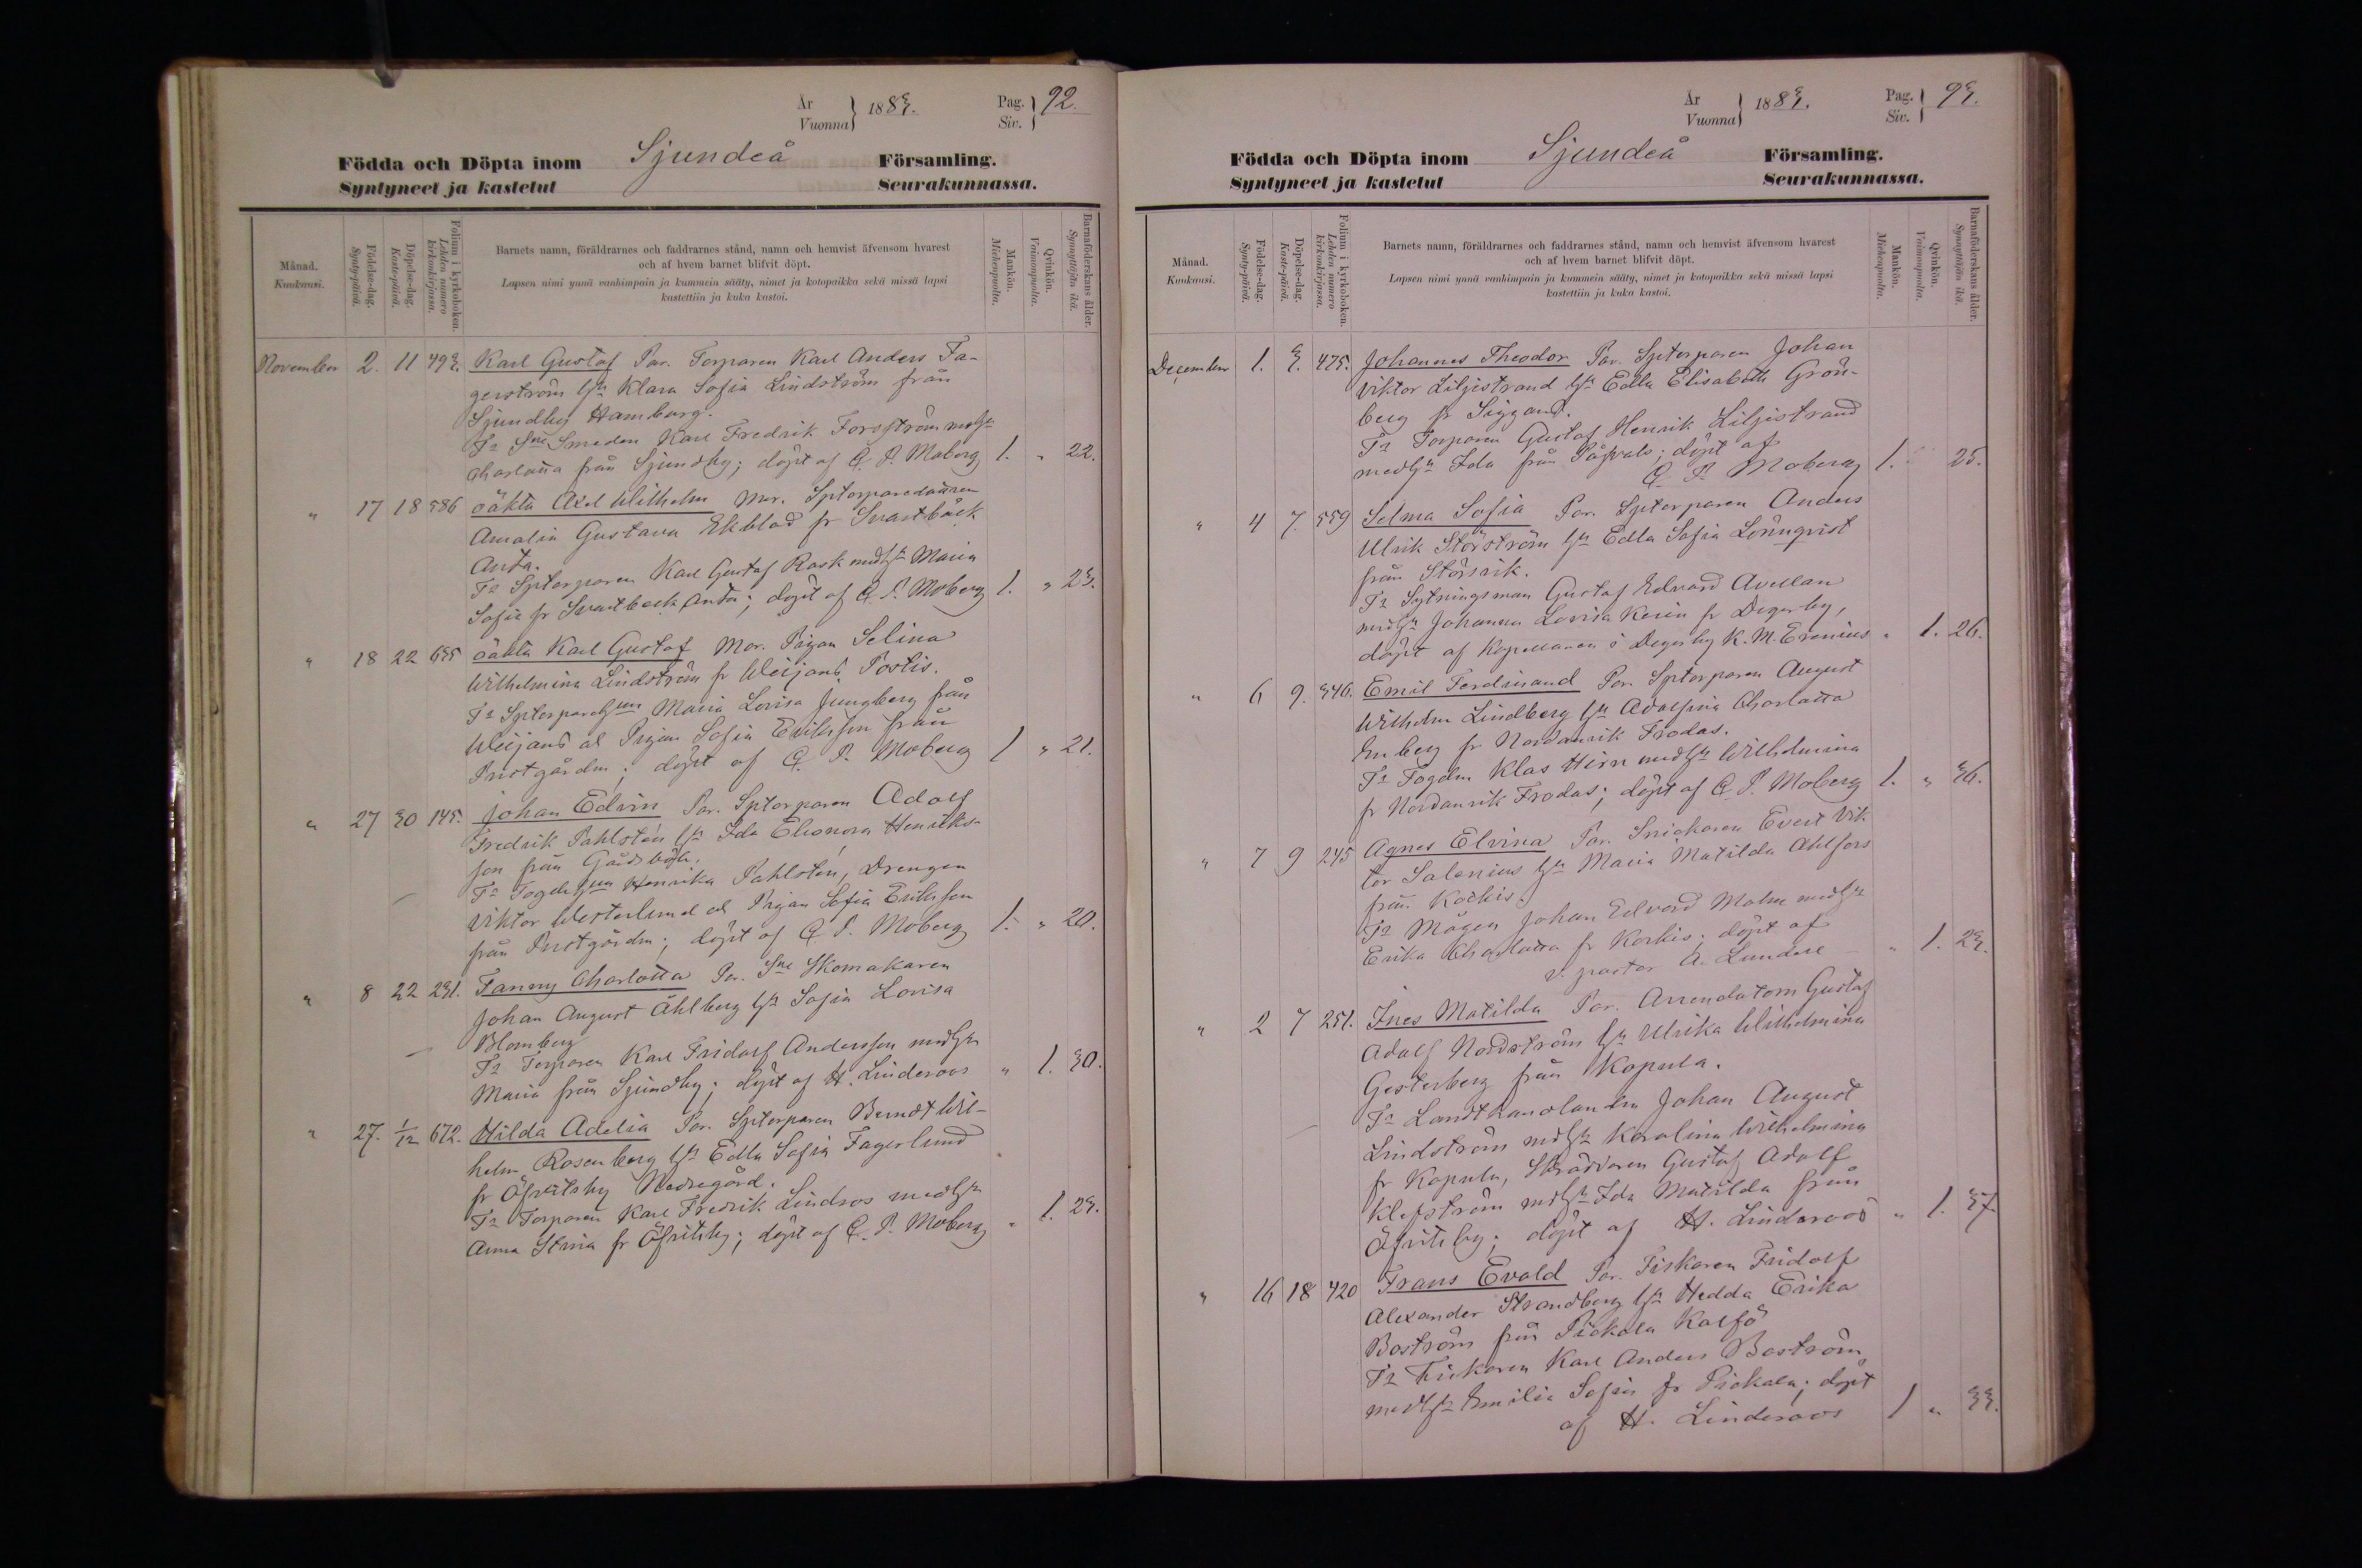 År
Vuonna
1883.
Pag.
Siv.
92.
Födda och Döpta inom Sjundeå Församling.
Syntyneet ja kastetut Seurakunnassa.
Månad.
Kuukausi.
Födelse-dag.
Synty-päivä.
Döpelse-dag.
Kaste-päivä.
Folium i kyrkoboken.
Lehden numero kirkonkirjassa.
Barnets namn, föräldrarnes och faddrarnes stånd, namn och hemvist äfvensom hvarest
och af hvem barnet blifvit döpt.
Lapsen nimi ynnä vanhimpain ja kummein sääty, nimet ja kotopaikka sekä missä lapsi
kastettiin ja kuka kastoi.
Mankön.
Miehenpuolta.
Qvinkön.
Vaimonpuolta.
Barnaföderskans ålder.
Synnyttäjän ikä.
November 2. 11 493. Karl Gustaf Par. Torparen Karl Anders Fa-
gerström hu Klara Sofia Lindström från
Sjundby Hamburg.
Fr Sne Smeden Karl Fredrik Forsström m hu
Charlotta från Sjundby; döpt af C. P. Moberg 1. " 22.
" 17 18 586 oäkta Axel Wilhelm Mor. Sptorparedottren
Amalia Gustava Ekblad fr Svartbäck
Antä.
Fr Sptorparen Karl Gustaf Rask med hu Maria
Sofia fr Svartbäck Antä; döpt af C. P. Moberg 1. " 23.
" 18 22 635 oäkta Karl Gustaf Mor. Pigan Selina
Wilhelmina Lindström fr Weijans Postis.
Fr Sptorparehun Maria Lovisa Jungberg från
Weijans al Pigan Sofia Eriksson från
Prestgården; döpt af C. P. Moberg 1 " 21.
" 27 30 145. Johan Edvin Par. Sptorparen Adolf
Fredrik Pahlsten hu Ida Eleonora Henriks-
son från Gårdsböle.
Fr Fogdehun Henrika Pahlsten, Drengen
Viktor Westerlund al Pigan Sofia Eriksson
från Prestgården; döpt af C. P. Moberg 1. " 20.
" 8 22 231. Fanny Charlotta Par. Sne Skomakaren
Johan August Åhlberg hu Sofia Lovisa
Blomberg
Fr Torparen Karl Fridolf Andersson med hu
Maria från Sjundby; döpt af H. Linderoos " 1. 30.
" 27. 1/12 672. Hilda Adelia Par. Sptorparen Berndt Wil-
helm Rosenberg hu Edla Sofia Fagerlund
fr Öfvitsby Nedregård.
Fr Torparen Karl Fredrik Lindroos med hu
Anna Stina fr Öfvitsby; döpt af C. P. Moberg " 1. 23.
År
Vuonna
1883.
Pag.
Siv.
93.
Födda och Döpta inom Sjundeå Församling.
Syntyneet ja kastetut Seurakunnassa.
Månad.
Kuukausi.
Födelse-dag.
Synty-päivä.
Döpelse-dag.
Kaste-päivä.
Folium i kyrkoboken.
Lehden numero kirkonkirjassa.
Barnets namn, föräldrarnes och faddrarnes stånd, namn och hemvist äfvensom hvarest
och af hvem barnet blifvit döpt.
Lapsen nimi ynnä vanhimpain ja kummein sääty, nimet ja kotopaikka sekä missä lapsi
kastettiin ja kuka kastoi.
Mankön.
Miehenpuolta.
Qvinkön.
Vaimonpuolta.
Barnaföderskans ålder.
Synnyttäjän ikä.
December 1. 3. 475. Johannes Theodor Par. Sptorparen Johan
Viktor Liljestrand hu Edla Elisabeth Grön-
berg fr Siggans.
Fr Torparen Gustaf Henrik Liljestrand
med hu Ida från Påfvals; döpt af
C. P. Moberg 1. 25.
" 4 7. 559 Selma Sofia Par. Sptorparen Anders
Ulrik Störström hu Edla Sofia Lönnqvist
från Störsvik.
Fr Sytningsman Gustaf Edvard Avellan
med hu Johanna Lovisa Kevin fr Degerby,
döpt af Kapellanen i Degerby K. M. Erenius " 1. 26.
" 6 9. 346. Emil Ferdinand Par. Sptorparen August
Wilhelm Lindberg hu Adolfina Charlotta
Enberg fr Nordanvik Frodas.
Fr Fogden Klas Hirn med hu Wilhelmina
fr Nordanvik Frodas; döpt af C. P. Moberg 1. " 36.
" 7 9 245 Agnes Elvina Par. Snickaren Evert Vik
tor Salenius hu Maria Matilda Ahlfors
från Kockis.
Fr Mågen Johan Edvard Malm med hu
Erika Charlotta fr Korkis; döpt af
v. pastor A. Lundell " 1. 23.
" 2 7 251. Ines Matilda Par. Arrendatorn Gustaf
Adolf Nordström hu Ulrika Wilhelmina
Gesterberg från Kopula.
Fr Landthandlanden Johan August
Lindström med hu Karolina Wilhelmina
fr Kopula, Skräddaren Gustaf Adolf
Klefström med hu Ida Matilda från
Öfvitsby; döpt af H. Linderoos " 1. 37.
" 16 18 420 Frans Evald Par. Fiskaren Fridolf
Alexander Strandberg hu Hedda Erika
Boström från Pickala Kalfö
Fr Fiskaren Karl Anders Boström
med hu Emilia Sofia fr Pickala; döpt
af H. Linderoos 1 " 33.